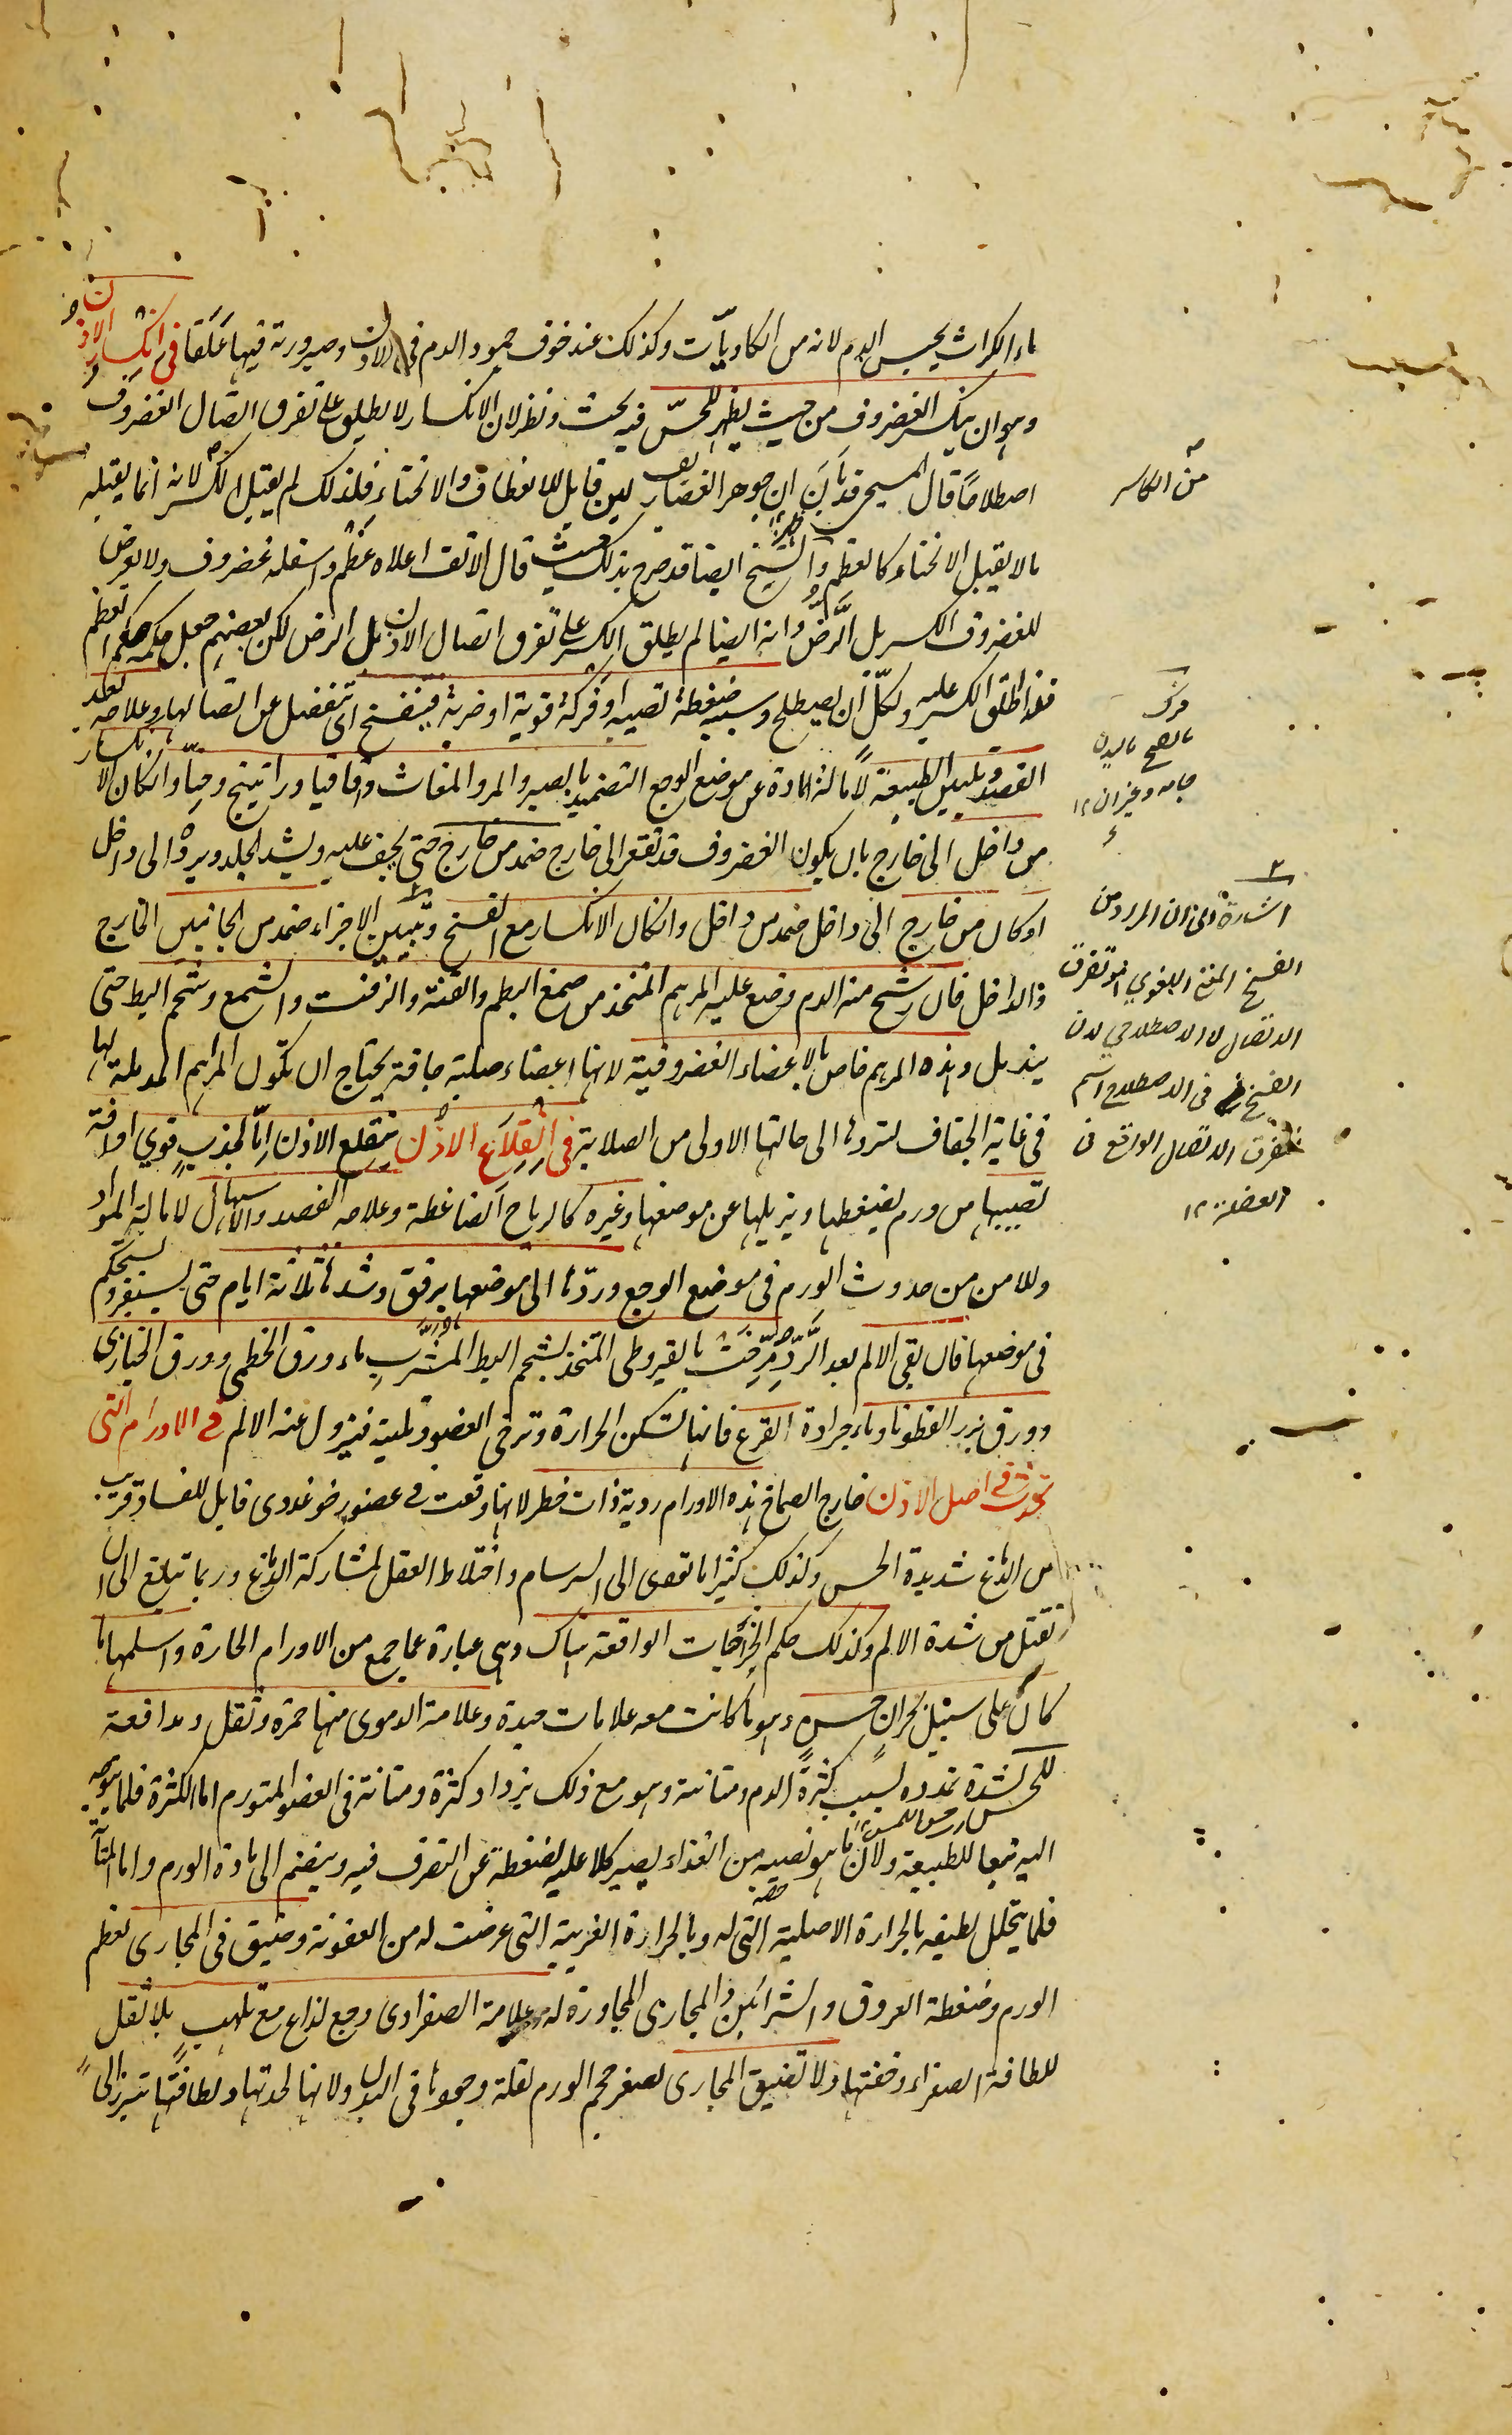 ماء الكراث يحبس الدم لانه من الكاويات وكذلك عند خوف جمود الدم في الاذن وصيرورته فيها علقا في انكسار الاذن
وهو ان ينكسر الغضروف من حيث يظهر للحس فيه بحث ونظر لان الانكسار لا يطلق على تفرق اتصال الغضروف
اصطلاحا قال المسيحي قد بان ان جوهر الغضاريف لين قابل للانعطاف والانحناء فلذلك لم يقبل الكسر لانه انما يقبله
ما لا يقبل الانحناء كالعظم والشيخ ايضا قد صرح بذلك حيث قال الانف اعلاه عظم واسفله غضروف ولا يعرض
للغضروف الكسر بل الرض وانه ايضا لم يطلق الكسر على تفرق اتصال الاذن بل الرض لكن بعضهم جعل حكمه حكم العظم
فقد اطلق الكسر عليه ولكل ان يصطلح وسببه ضغطة تصيبه او فركة قوية او ضربة فينفسخ اى تنفصل عن اتصالها وعلاجه بعد
الفصد وتليين الطبيعة لامالة المادة عن موضع الوجع التضميد بالصبر والمر والمغاث واقاقيا وراتينج وحيا وان كان الانكسار
من داخل الى خارج بان يكون الغضروف قد تقعر الى خارج ضمد من خارج حتى يجف عليه ويشد الجلد ويرده الى داخل
او كان من خارج الى داخل ضمد من داخل وان كان الانكسار مع الفسخ وتبين الاجزاء ضمد من الجانبين الخارج
والداخل فان رشح منه الدم وضع عليه المرهم المتخذ من صمغ البطم والقنة والزفت والشمع وشحم البط حتى
يندمل وهذه المرهم خاص بالاعضاء الغضروفية لانها اعضاء صلبة جافة يحتاج ان تكون المراهم المدملة لها
في غاية الجفاف لتردها الى حالتها الاولى من الصلابة في انقلاع الاذن ينقلع الاذن اما لجذب قوي او لآفة
تصيبها من ورم يضغطها ويزيلها عن موضعها وغيره كالرياح الضاغطة وعلاجه الفصد والاسهال لامالة المواد
وللامن من حدوث الورم في موضع الوجع وردها الى موضعها برفق وشدها ثلاثة ايام حتى يستقر ويستحكم
في موضعها فان بقي الالم بعد الرد مرخت بالقيروطي المتخذ بشحم البط المشرب ماء ورق الخطمي وورق الخبازي
وورق بزر القطونا وماء جرادة القرع فانها تسكن الحرارة وترخي العضو وتلينه فيزول عنه الالم في الاورام التي
تحدث في اصل الاذن خارج الصماخ هذه الاورام ردية ذات خطر لانها وقعت في عضو رخو غددى قابل للفساد قريب
من الدماغ شديدة الحس وكذلك كثيرا ما تؤدى الى السرسام واختلاط العقل لمشاركة الدماغ وربما تبلغ الى ان
تقتل من شدة الالم وكذلك حكم الخراجات الواقعة هناك وهي عبارة عما جمع من الاورام الحارة واسلمها ما
كان على سبيل بحران حسن وهو ما كانت معه علامات جيدة وعلامة الدموى منها حمرة وثقل ومدافعة
للحس لشدة تمدده بسبب كثرة الدم ومتانته وهو مع ذلك يزداد كثرة ومتانة في العضو المتورم اما الكثرة فلما يتوجه
اليه تبعا للطبيعة ولان ما هو نصيبه من الغذاء يصير كلا عليه لضغطه عن التصرف فيه وينضم الى مادة الورم واما المتانة
فلما يتحلل لطيفه بالحرارة الاصلية التي له وبالحرارة الغريبة التي عرضت له من العفونة وضيق في المجارى لعظم
الورم وضغطه العروق والشرائين والمجارى المجاورة له وعلامة الصفراوى وجع لذاع مع تلهب بلا ثقل
للطافة الصفراء وخفتها ولا تضيق المجارى لصغر حجم الورم لقلة وجودها في البدن ولانها لحدتها ولطافتها
من الكاسر
فرك
جامه وغيران ١٢
اشارة الى ان المراد من
الفسخ المعنى اللغوي هو تفرق
الاتصال لا الاصطلاحي لان
الفسخ في الاصطلاح اسم
تفرق الاتصال الواقع في
العضلة ١٢